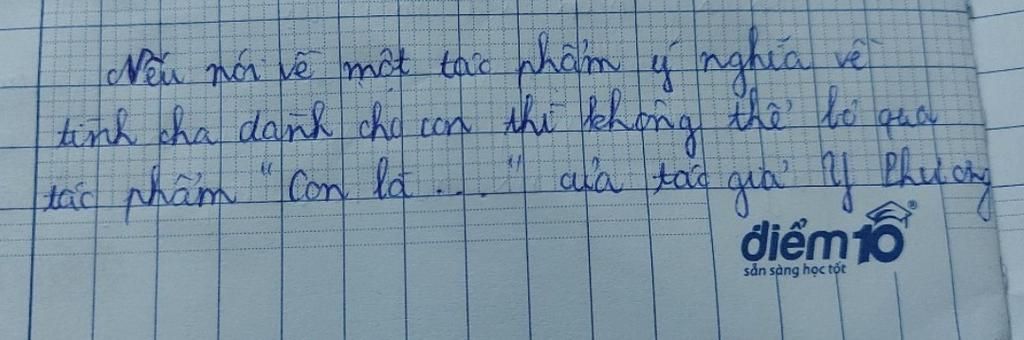 Nếu nói về một tác phẩm ý nghĩa về
tình cha dành cho con thì không thể bỏ qua
tác phẩm "Con là...." của tác giả Y Phương
điểm 10®
sẵn sàng học tốt